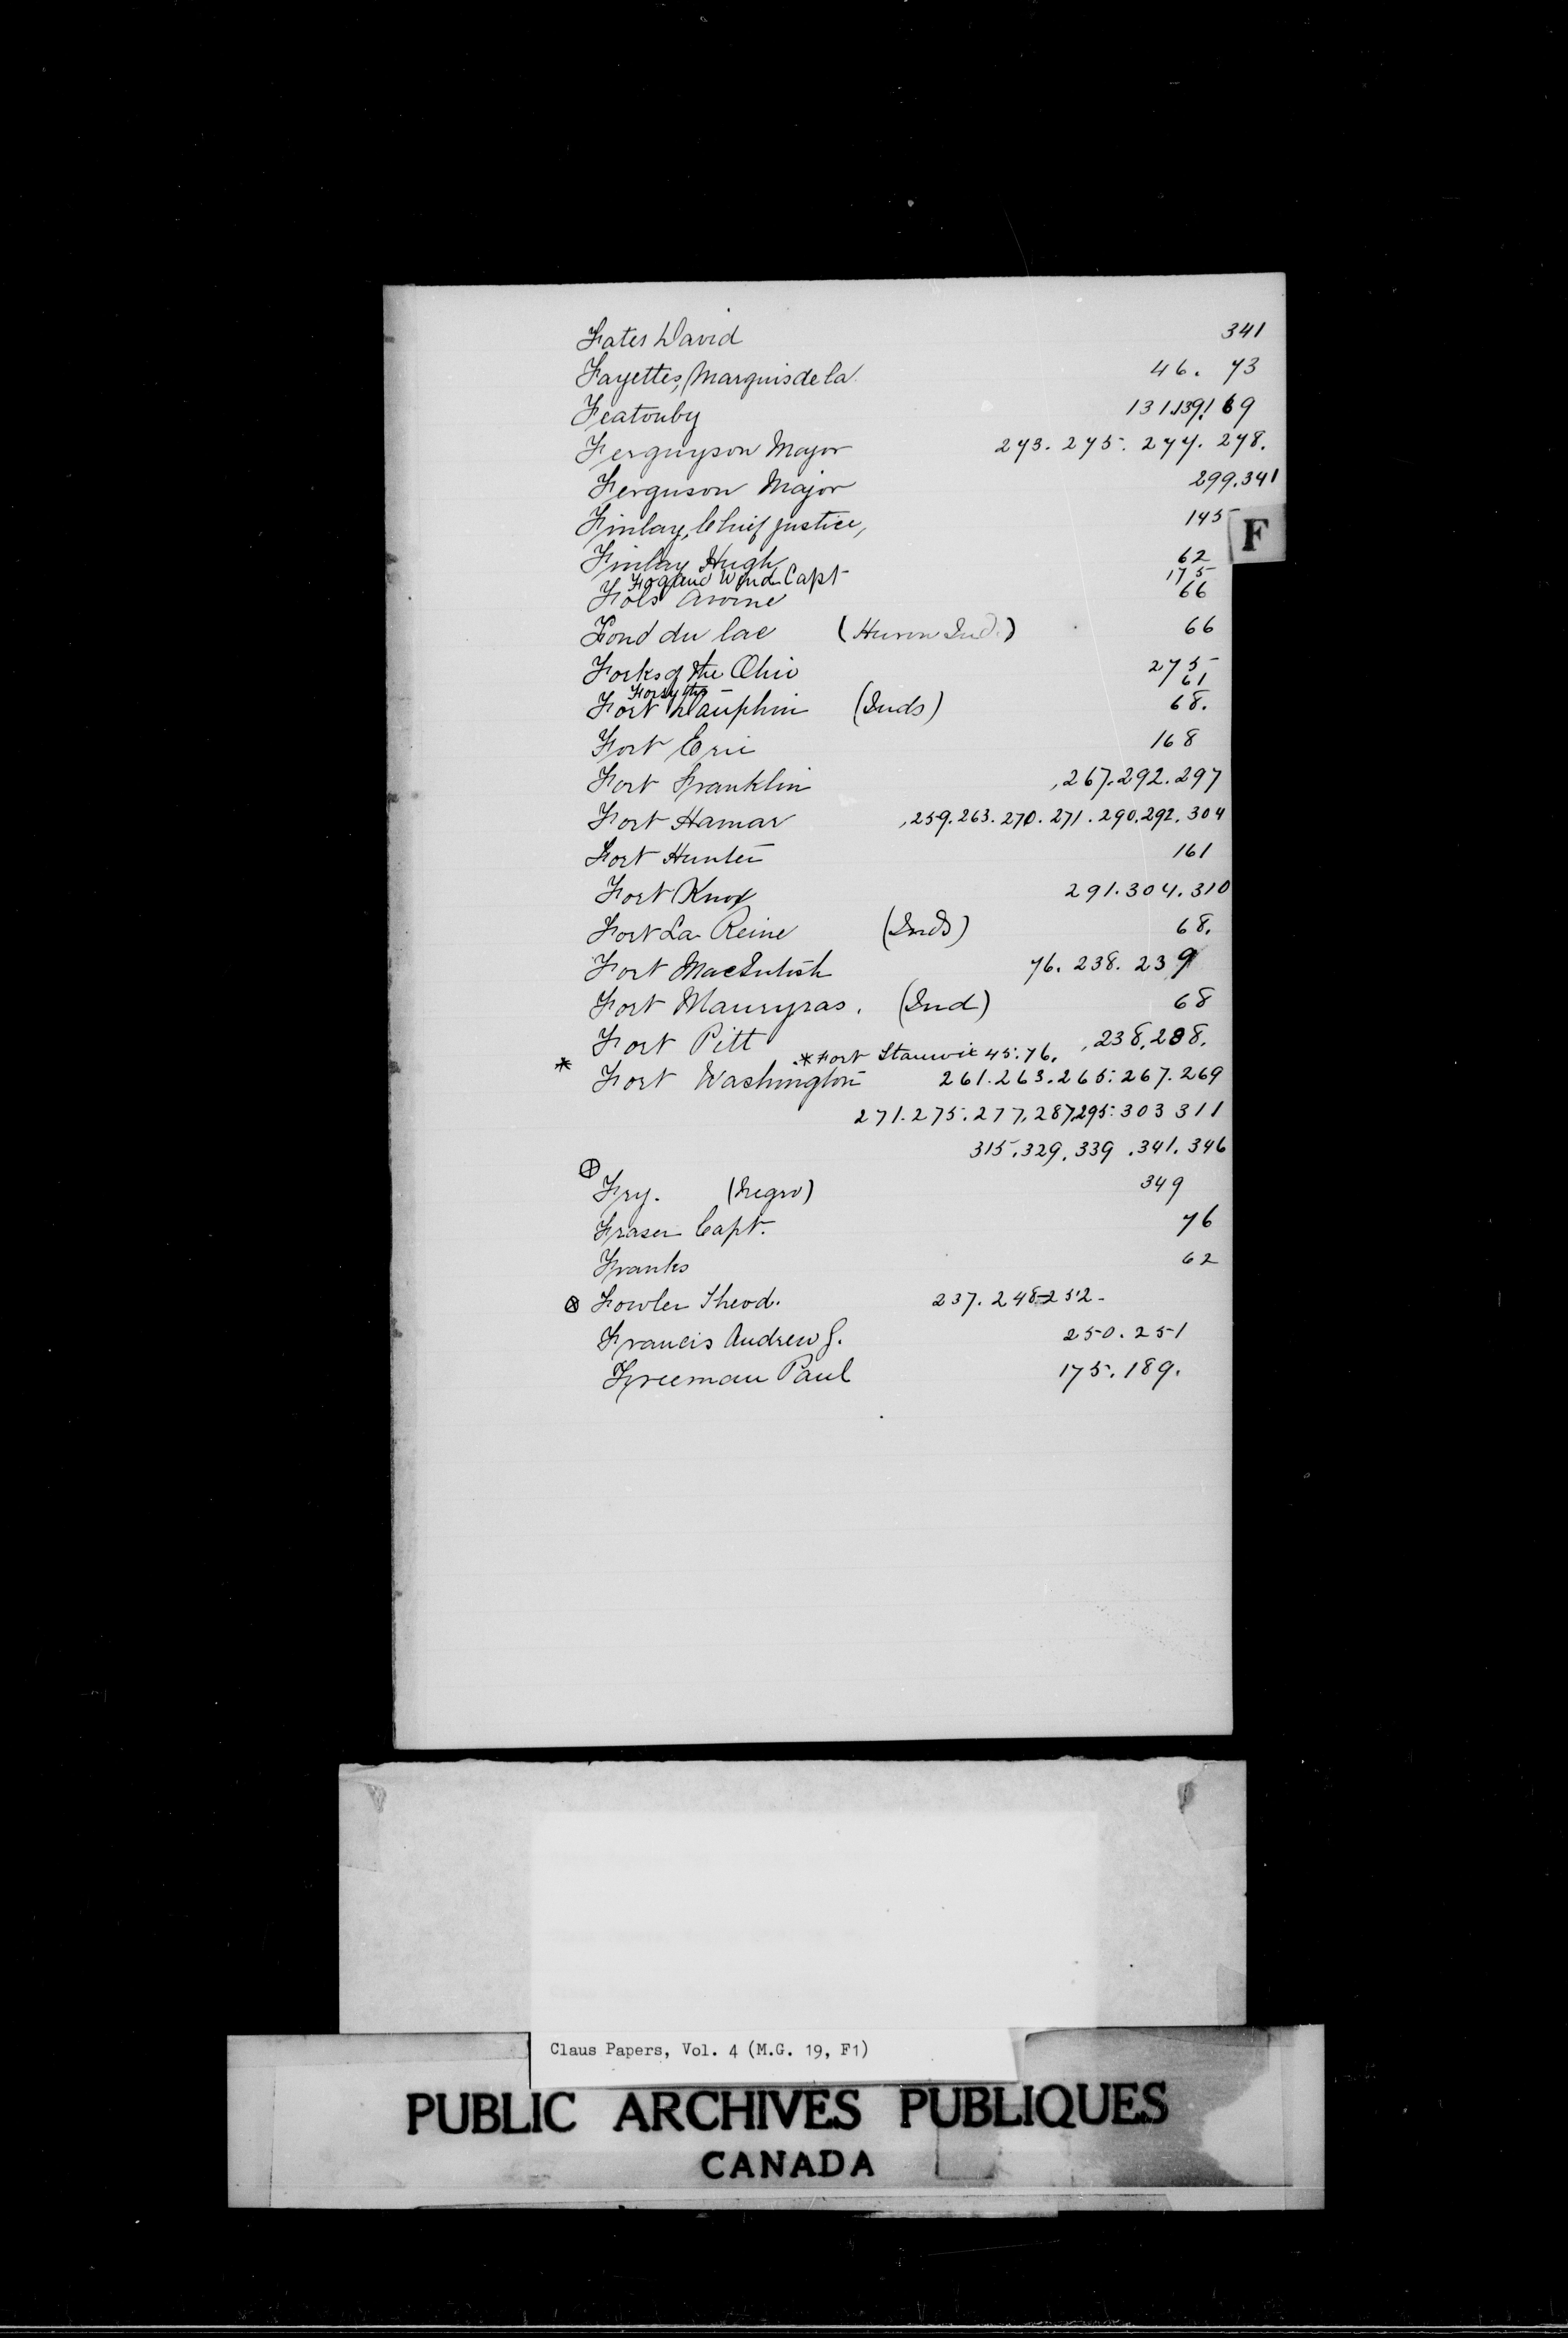 Fates David 341
Fayettes, Marquis de la 46. 73
Featonby 131.139.169
Ferguyson Major 273. 275. 277. 278.
Ferguson Major 299.341
Finlay, Chief justice, 145
F
Finlay Hugh 62
Fog and Wind Capt 175
Fols Avoine 66
Fond du lac (Huron Ind.) 66
Forks of the Ohio 275
Forsyths 61
Fort Dauphin (Inds) 68.
Fort Erie 168
Fort Franklin ,267.292.297
Fort Hamar ,259.263.270.271.290.292.304
Fort Hunter 161
Fort Knox 291.304.310
Fort La Reine (Inds) 68.
Fort MacIntosh 76. 238. 239
Fort Mauryras. (Ind) 68
Fort Pitt ,238,288.
* Fort Stanwix 45.76.
* Fort Washington 261.263.265.267.269
271.275.277.287.295.303 311
315.329.339.341.346
⊕
Fry. (Negro) 349
Fraser Capt. 76
Franks 62
⊗ Fowler Theod. 237.248-252-
Francis Andrew J. 250.251
Freeman Paul 175.189.
Claus Papers, Vol. 4 (M.G. 19, F1)
PUBLIC ARCHIVES PUBLIQUES
CANADA